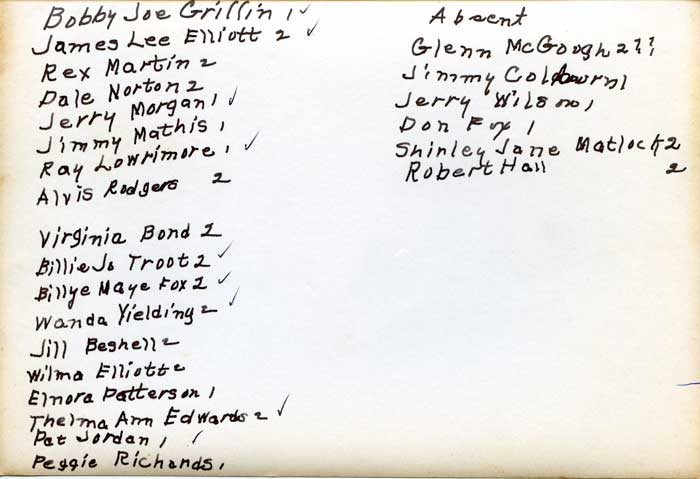 Bobby Joe Griffin 1 ✓
James Lee Elliott 2 ✓
Rex Martin 2
Dale Norton 2
Jerry Morgan 1 ✓
Jimmy Mathis 1
Ray Lowrimore 1 ✓
Alvis Rodgers 2
Virginia Bond 2
Billie Jo Troot 2 ✓
Billye Maye Fox 2 ✓
Wanda Yielding 2 ✓
Jill Beshell 2
Wilma Elliott 2
Elnora Patterson 1
Thelma Ann Edwards 2 ✓
Pat Jordan 1 ✓
Peggie Richards 1
Absent
Glenn McGough 2
Jimmy 1
Jerry Wilson 1
Don Fox 1
Shirley Jane Matlock 2
Robert Hall 2